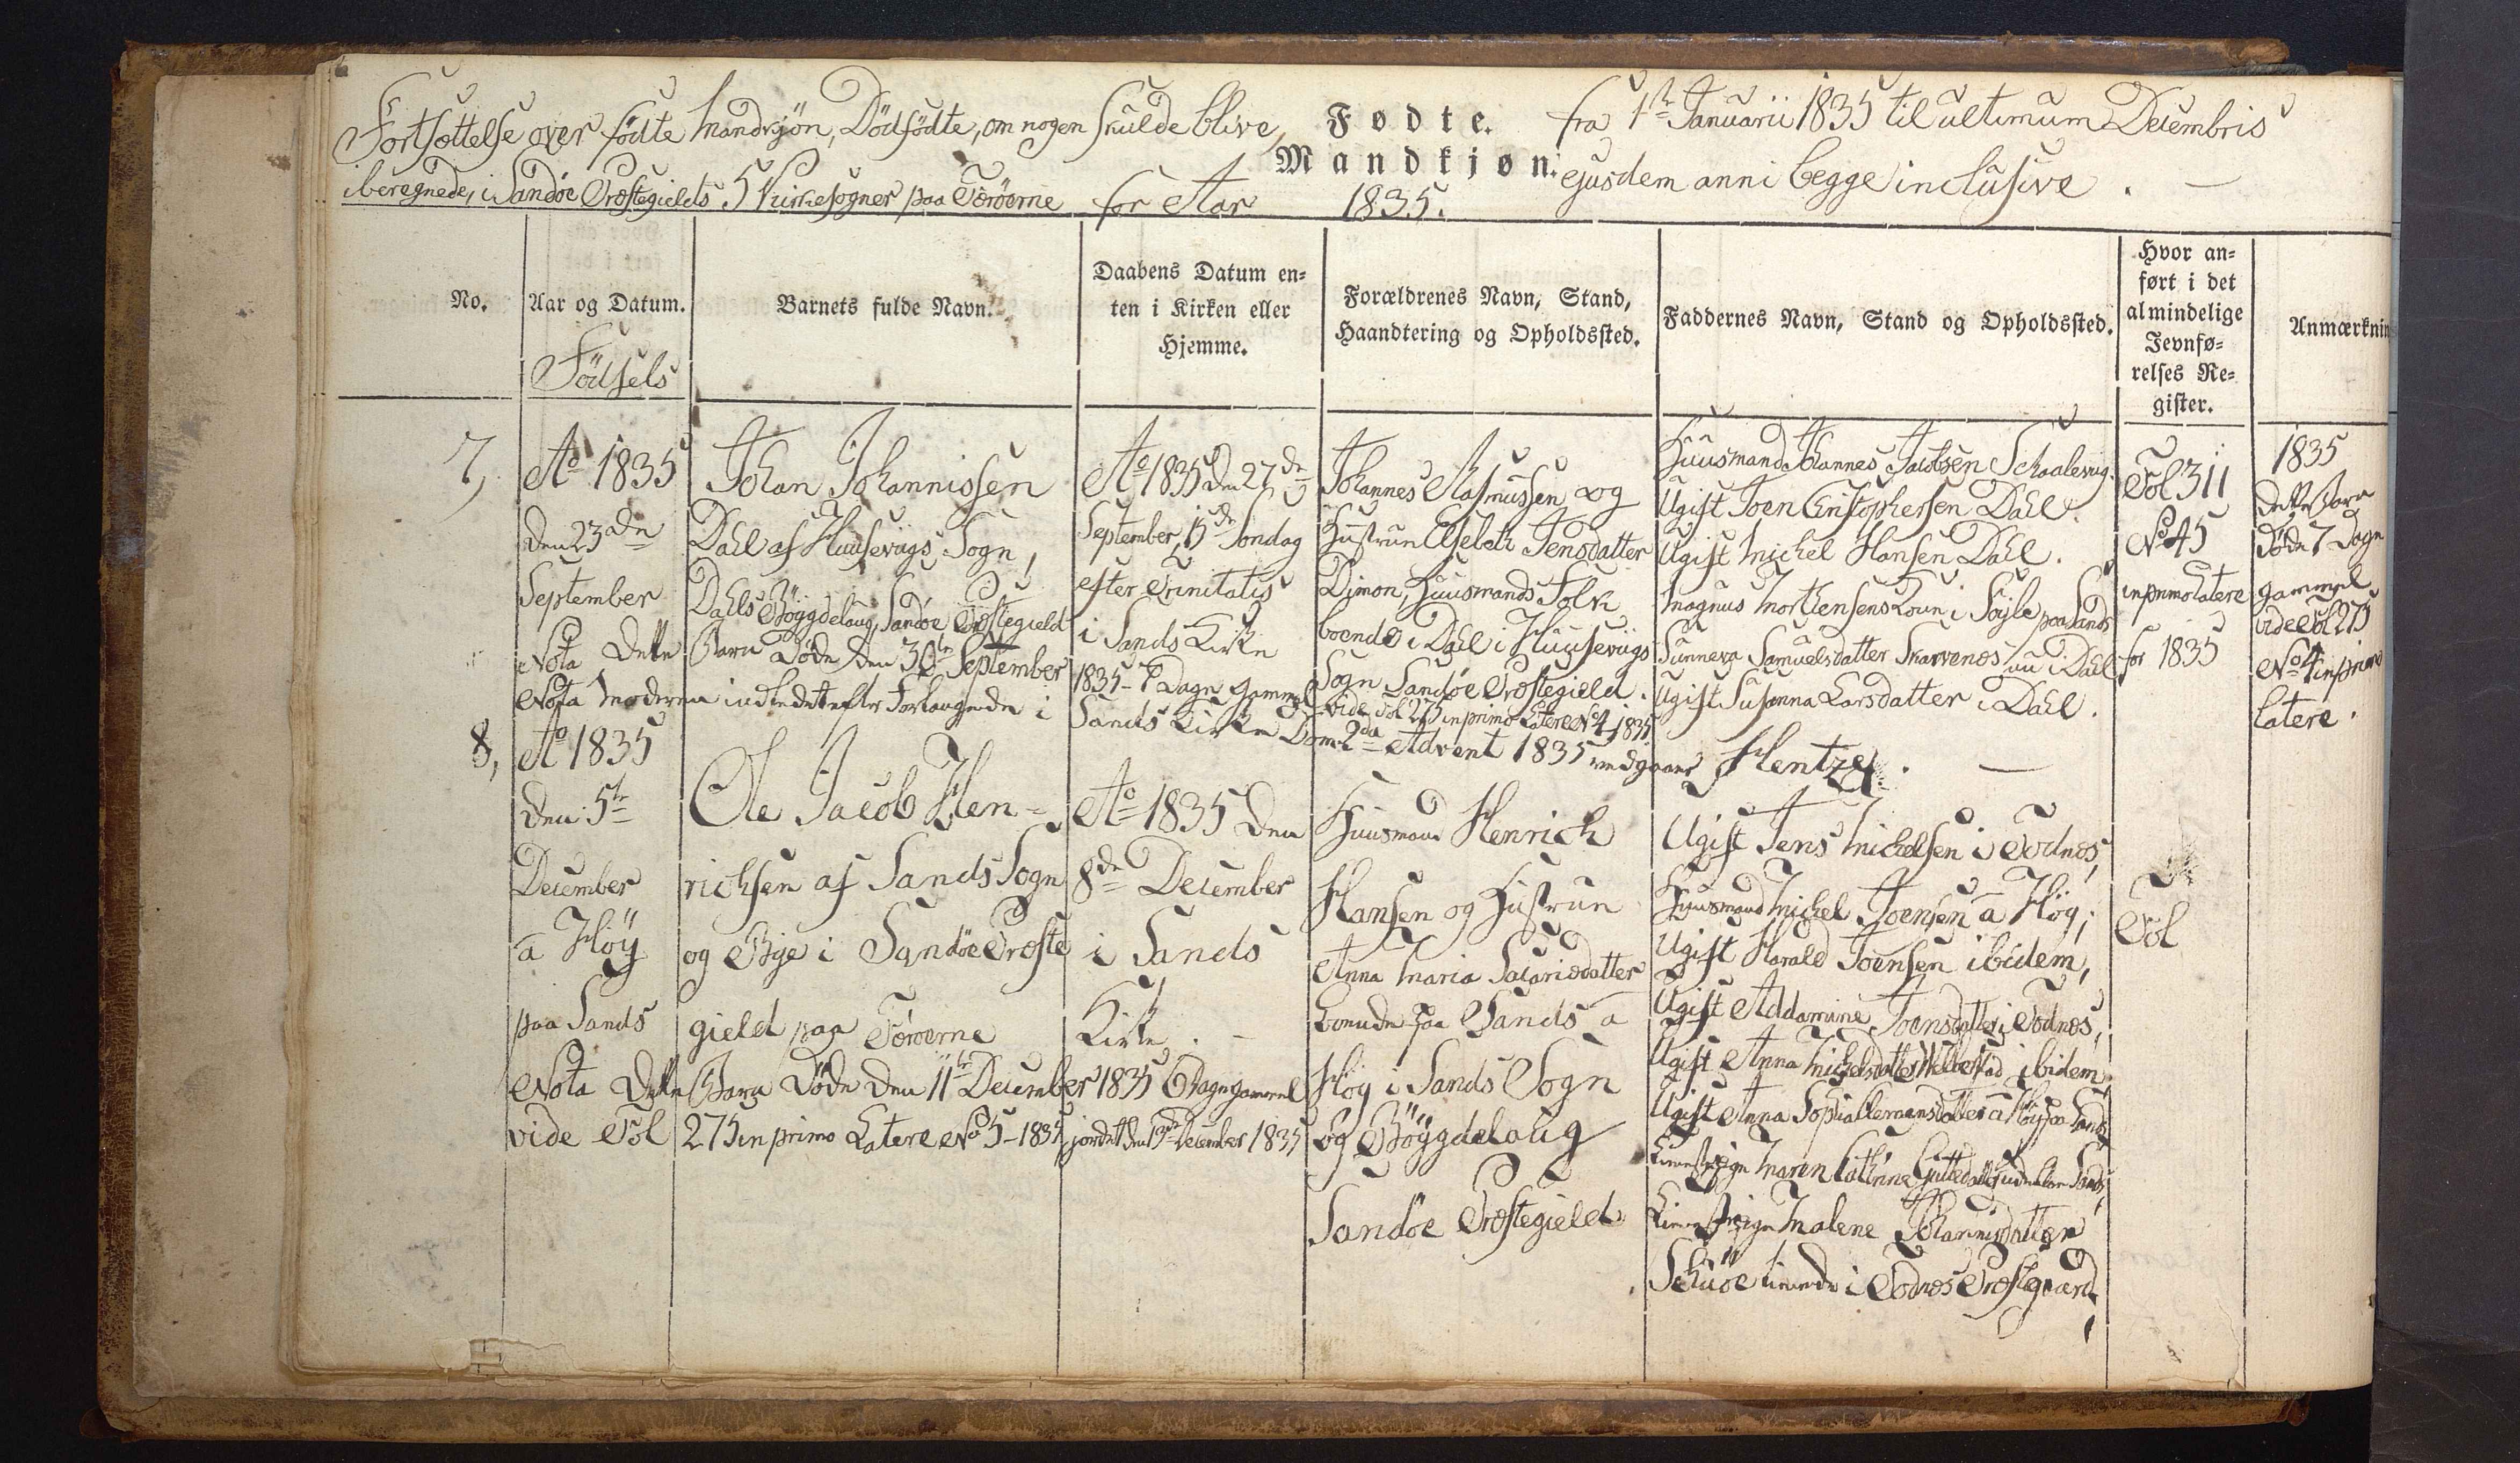 Fortsættelse over fødte Mandkjøn, Dödfödte, om nogen skulde blive,
iberegnede, i Sandöe Præstegields 5 Kirkesogner paa Færöerne for Aar
Fødte.
Mandkjøn.
1835.
fra 1ste Januarii 1835 til ultimum Decembris
ejusdem anni begge inclusive. —
No.
Aar og Datum.
Födsels
Barnets fulde Navn.
Daabens Datum en-
ten i Kirken eller
Hjemme.
Forældrenes Navn, Stand,
Haandtering og Opholdssted.
Faddernes Navn, Stand og Opholdssted.
Hvor an-
ført i det
almindelige
Jevnfø-
relses Re-
gister.
Anmærknin
7,
Ao 1835
den 23de
September
Johan Johannissen
Dahl af Huusevigs Sogn,
Dahls Böygdelaug, Sandöe Præstegield
Ao 1835 den 27de
September, 15de Söndag
efter Trinitatis
i Sands Kirke
Johannes Rasmussen og
Hustrue Elsebeth Jensdatter
Dimon, Huusmands Folk
boende i Dahl i Huusevigs
Sogn Sandöe Præstegield.
Huusmand Johannes Jacobsen Schaalevig.
Ugift Joen Christophersen Dahl.
Ugift Michel Hansen Dahl.
Magnus Morthensens Kone i Söyle paa Sands
Sunneva Samuelsdatter Skarvenes nu i Dahl
Ugift Susanna Larsdatter i Dahl.
Fol 311
No 45
in primo Latere
for 1835
1835
dette Barn
döde 7 Dage
gammel
vide Fol 275
No 4 in primo
latere.
Nota dette Barn döde den 30te September 1835 - 7 Dage gammel vide Fol 275 in primo Latere No 4 1835
Nota Moderen indledet efter Forlangende i Sands Kirke Dom. 2da Advent 1835 vedgaaes Hentze. —
8,
Ao 1835
den 5te
December
a Höy
paa Sands
Ole Jacob Hen-
richsen af Sands Sogn
og Bye i Sandöe Præste
gield paa Færöerne
Ao 1835 den
8de December
i Sands
Kirke. -
Huusmand Henrich
Hansen og Hustrue
Anna Maria Sacarisdatter
boende paa Sands a
Höy i Sands Sogn
og Böygdelaug
Sandöe Præstegield
Ugift Jens Michelsen i Todnes,
Huusmand Michel Joensen a Höy;
Ugift Harald Joensen ibidem,
Ugift Addamine Joensdatter i Todnes,
Ugift Anna Michelsdatter Welbestad ibidem
Ugift Anna Sophia Clemensdatter a Höy paa Sands
Maren Cathrine Sands,
Malene Johannisdatter
Schuöe tienende i Todnes Præstegaard
Fol
Nota dette Barn döde den 11te December 1835 6 Dage gammel
vide Fol 275 in primo Latere No 5 - 1835 jordet den 13de December 1835